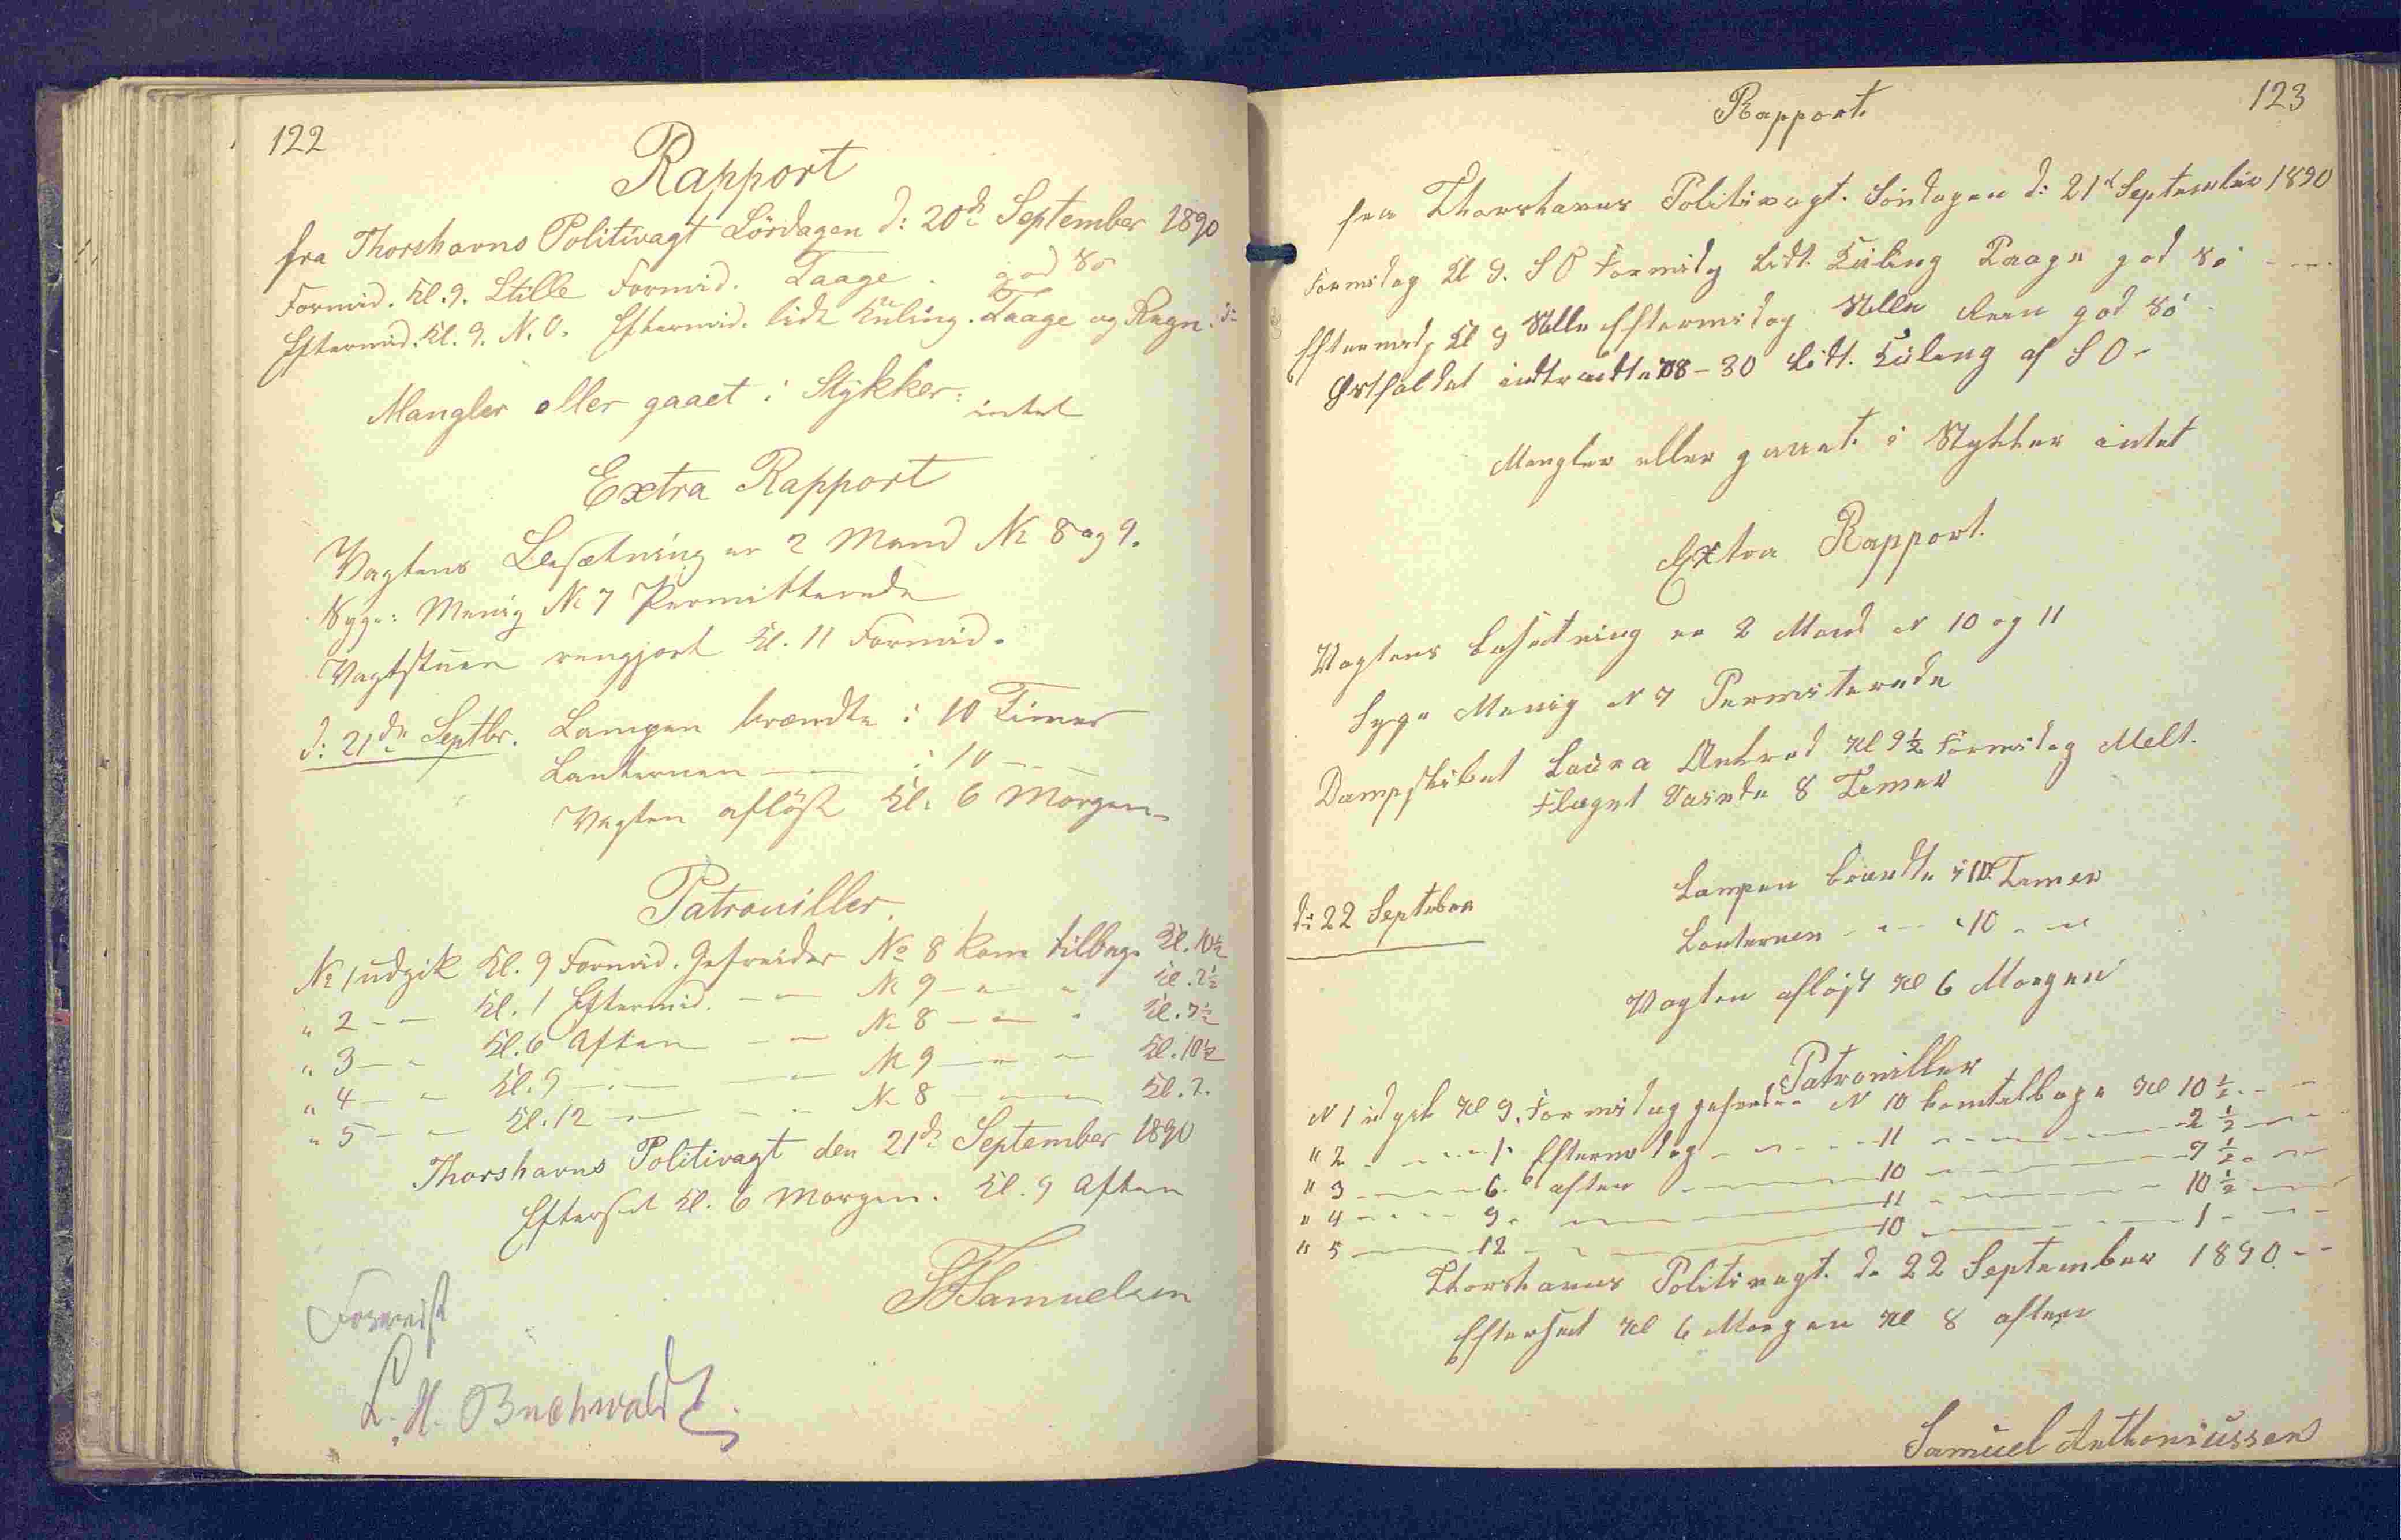 122
Rapport
fra Thorshavns Politivagt Lördagen d: 20de September 1890
Formid. Kl. 9. Stille Formid. Taage. god Sö
Eftermid. Kl. 9. N.O. Eftermid. lidt Kuling. Taage og Regn. d:
Mangler eller gaaet i Stykker: intet
Extra Rapport
Vagtens Besætning er 2 Mand No 8 og 9.
Syge: Menig No 7 Permitterede
Vagtstuen rengjort Kl. 11 Formid.
d: 21de Septbr. Lampen brændte i 10 Timer
Lanternen — — i 10 — —
Vagten aflöst Kl. 6 Morgen
Patrouiller.
No 1 udgik Kl. 9 Formid. Gefreider No 8 kom tilbage Kl. 10½
" 2 — — Kl. 1 Eftermid. — — No 9 — " — " Kl. 2½
" 3 — " Kl. 6 Aften — — No 8 — " — " Kl. 7½
" 4 — " Kl. 9 — " — — " No 9 — " — Kl. 10½
" 5 — " Kl. 12 — " — — " No 8 — " — Kl. 2.
Thorshavns Politivagt den 21de September 1890
Efterset Kl. 6 Morgen. Kl. 9 Aften
Samuelsen
Forevist
L. H. Buchwald
123
Rapport.
fra Thorshavns Politivagt. Söndagen d: 21d September 1890
Formidag Kl 9. S O Formidg Lidt Kuling Taage god Sö - - -
Eftermidg Kl 9 Stille Eftermidag Stille Reen god Sö
Østfaldet indtraadte 08-30 Lidt. Kuleng af S O -
Mangler eller gaaet. i Stykker intet
Extra Rapport.
Vagtens Besætning er 2 Mand N 10 og 11
Syge Menig N 7 Permiterede
Dampskibet Laura Ankred Kl 9½ Formidag Melt.
Flaget Vaiede 8 Timer
d: 22 September Lampen brændte i 10 Timer
Lanternen - - - i 10 - - -
Vagten afløst Kl 6 Morgen
Patrouiller
N 1 udgik Kl 9. Formidag gefreder N 10 komtelbage Kl 10½ - -
" 2 - - - - 1 Eftermidag - - - - - 11 - - - - - 2½ - -
" 3 - - - - 6. aften - - - - 10 - - - - - 7½ - -
" 4 - - - - 9. - - - - - 11 - - - - - 10½ - -
" 5 - - - - 12 - - - - - 10 - - - - - 1 - - -
Thorshavns Politivagt. d. 22 September 1890 - -
Efterset Kl 6 Morgen Kl 8 aften
Samuel Anthoniussen